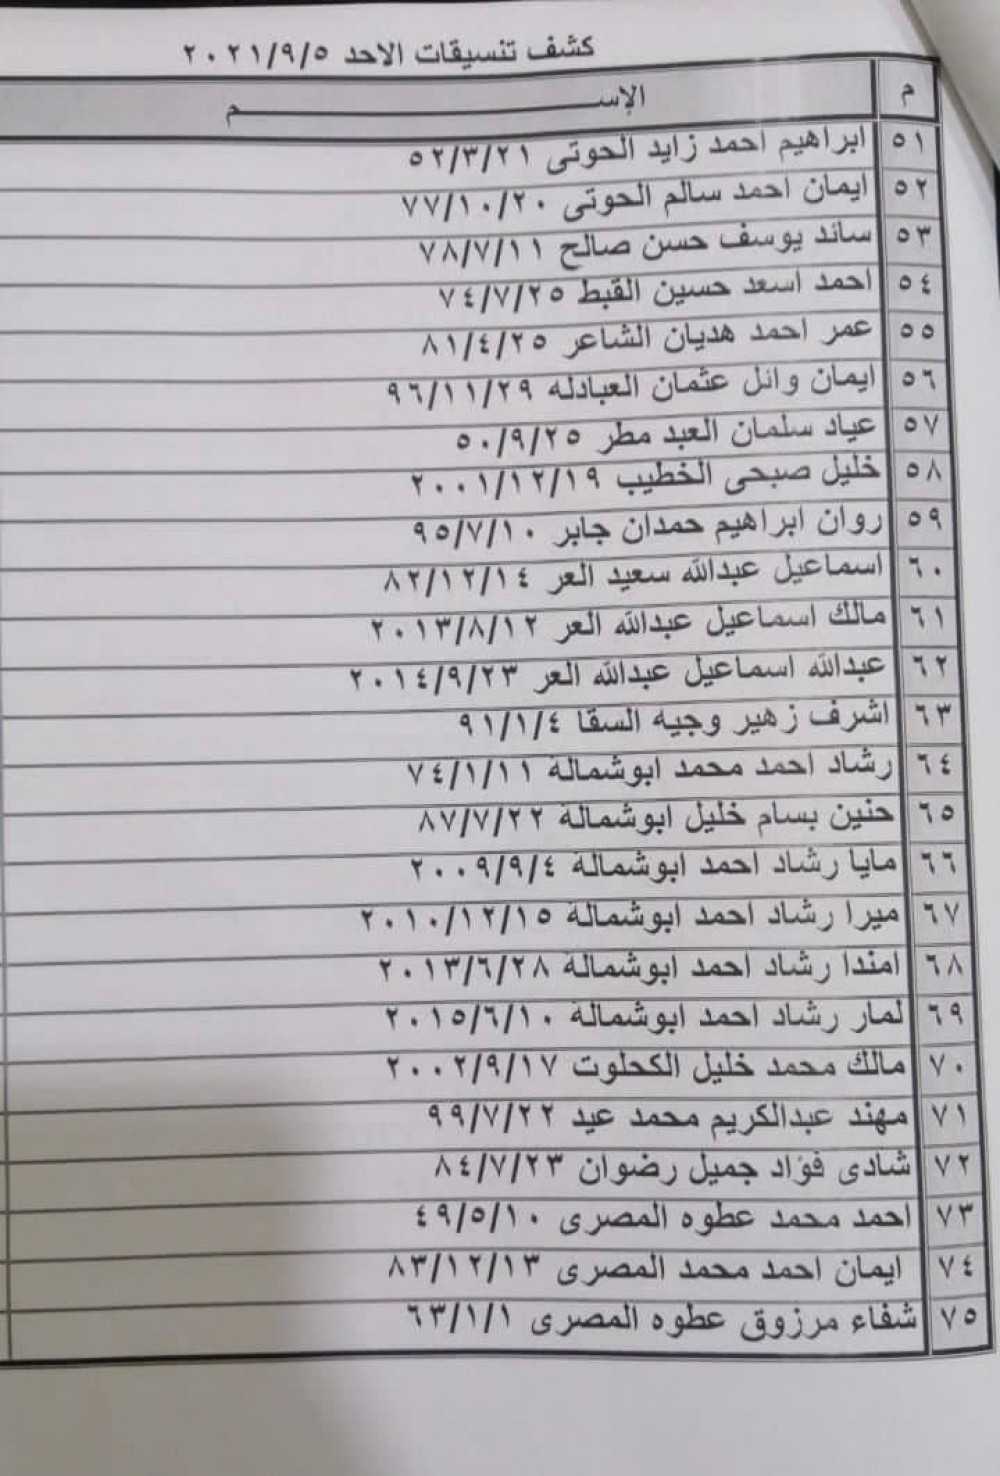 كشف تنسيقات الاحد ٢٠٢١/٩/٥
م الإســـــــــــم
٥١ ابراهيم احمد زايد الحوتى ٥٢/٣/٢١
٥٢ ايمان احمد سالم الحوتى ٧٧/١٠/٢٠
٥٣ سائد يوسف حسن صالح ٧٨/٧/١١
٥٤ احمد اسعد حسين القبط ٧٤/٧/٢٥
٥٥ عمر احمد هديان الشاعر ٨١/٤/٢٥
٥٦ ايمان وائل عثمان العبادله ٩٦/١١/٢٩
٥٧ عياد سلمان العبد مطر ٥٠/٩/٢٥
٥٨ خليل صبحى الخطيب ٢٠٠١/١٢/١٩
٥٩ روان ابراهيم حمدان جابر ٩٥/٧/١٠
٦٠ اسماعيل عبدالله سعيد العر ٨٢/١٢/١٤
٦١ مالك اسماعيل عبدالله العر ٢٠١٣/٨/١٢
٦٢ عبدالله اسماعيل عبدالله العر ٢٠١٤/٩/٢٣
٦٣ اشرف زهير وجيه السقا ٩١/١/٤
٦٤ رشاد احمد محمد ابوشمالة ٧٤/١/١١
٦٥ حنين بسام خليل ابوشمالة ٨٧/٧/٢٢
٦٦ مايا رشاد احمد ابوشمالة ٢٠٠٩/٩/٤
٦٧ ميرا رشاد احمد ابوشمالة ٢٠١٠/١٢/١٥
٦٨ امندا رشاد احمد ابوشمالة ٢٠١٣/٦/٢٨
٦٩ لمار رشاد احمد ابوشمالة ٢٠١٥/٦/١٠
٧٠ مالك محمد خليل الكحلوت ٢٠٠٢/٩/١٧
٧١ مهند عبدالكريم محمد عيد ٩٩/٧/٢٢
٧٢ شادى فؤاد جميل رضوان ٨٤/٧/٢٣
٧٣ احمد محمد عطوه المصرى ٤٩/٥/١٠
٧٤ ايمان احمد محمد المصرى ٨٣/١٢/١٣
٧٥ شفاء مرزوق عطوه المصرى ٦٣/١/١